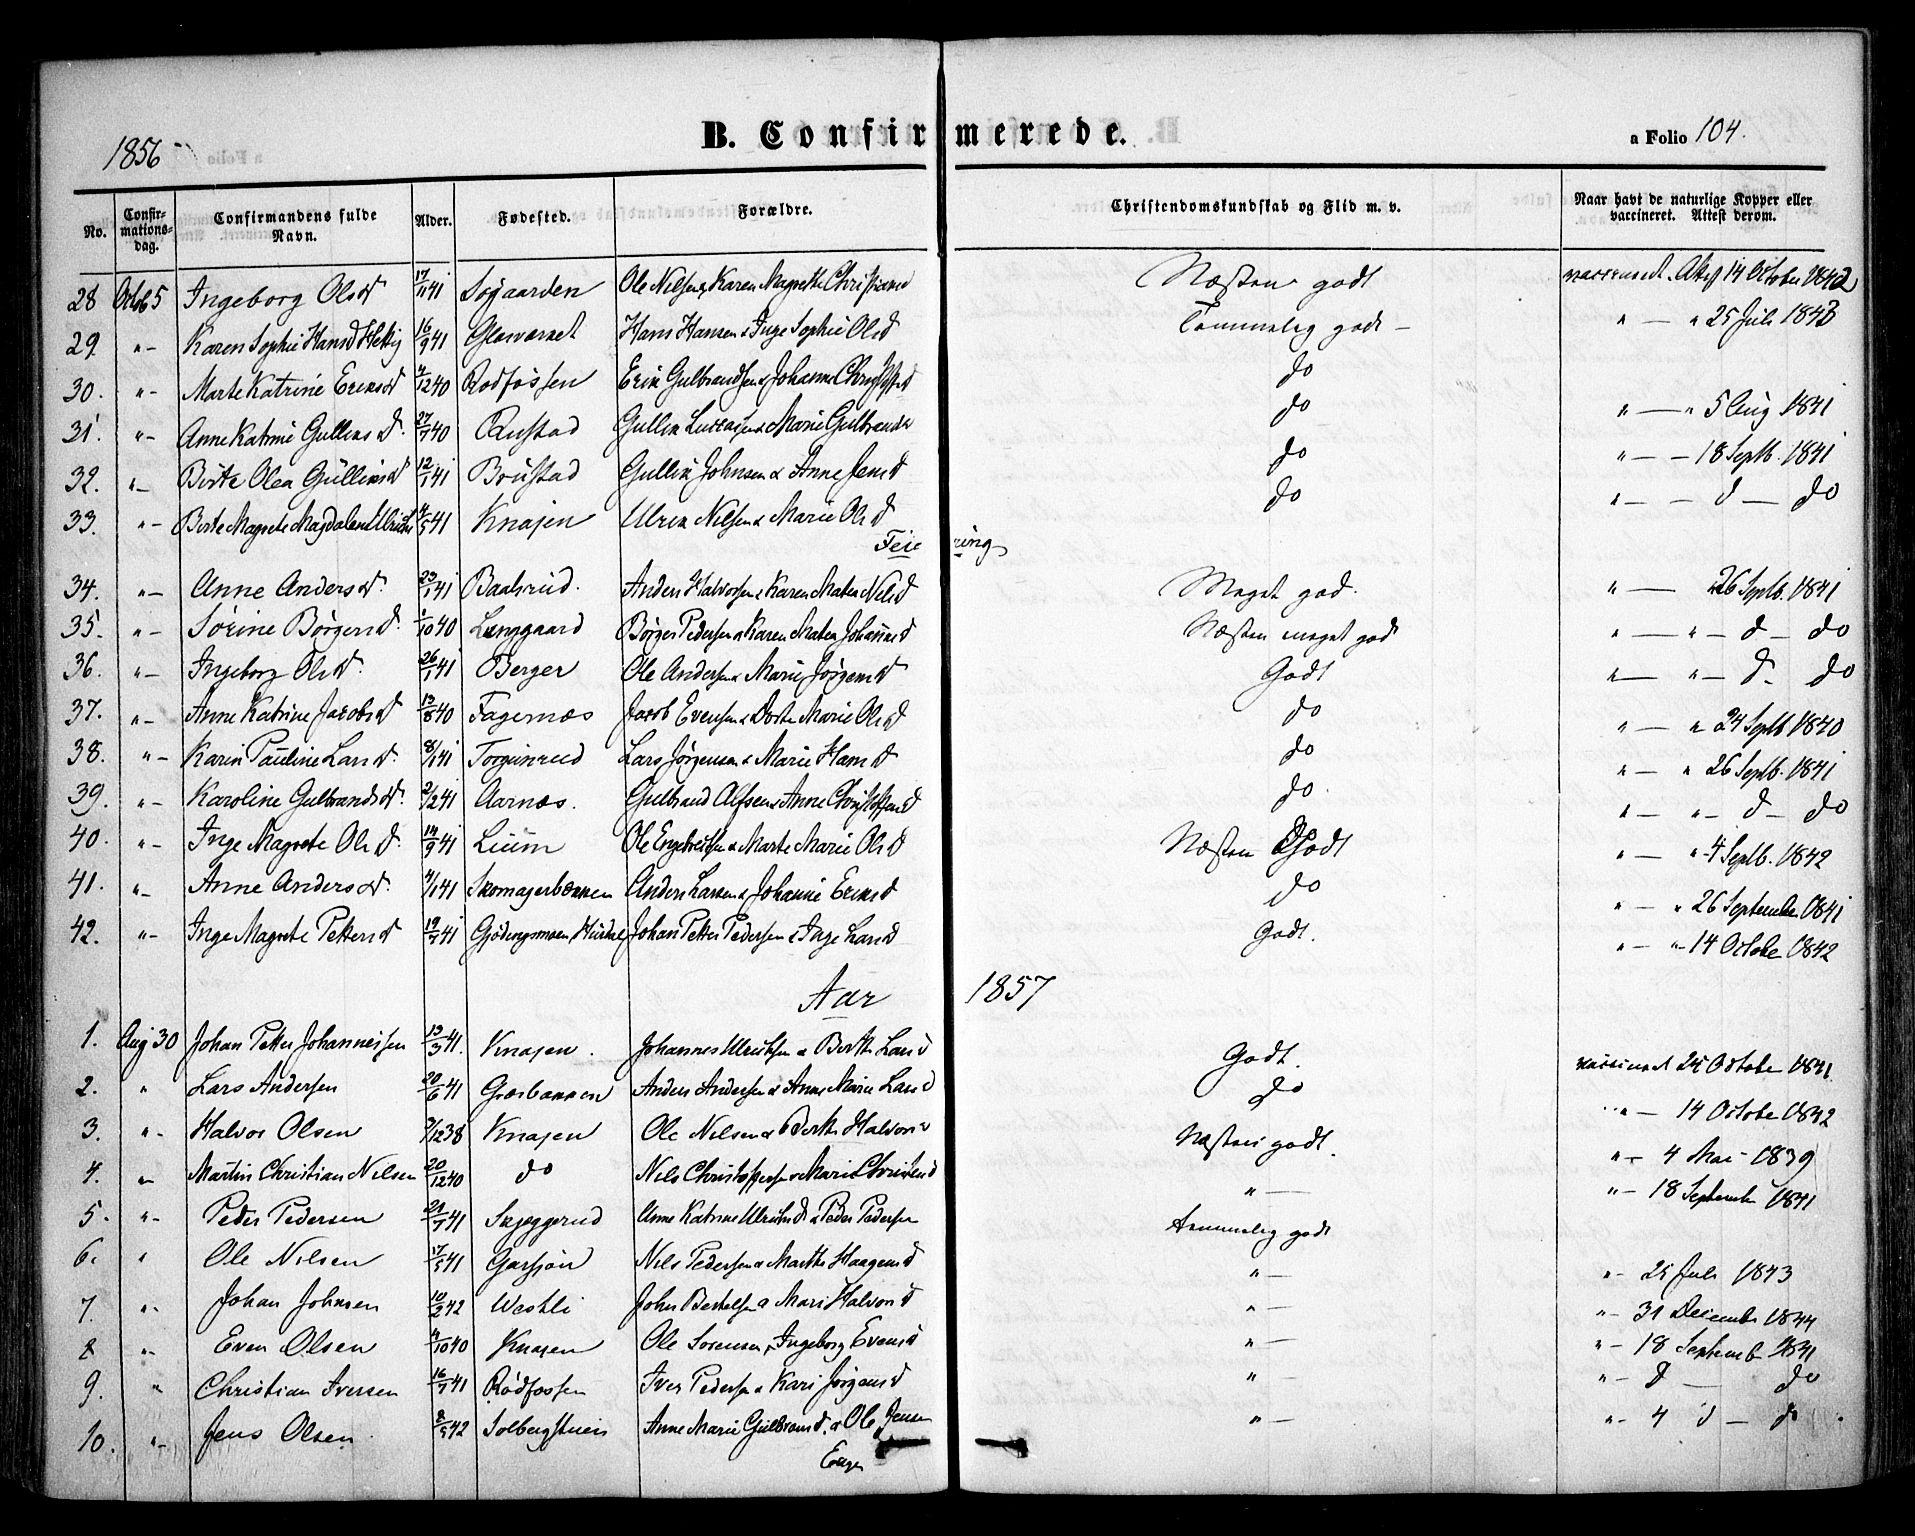 1856
B. Confirmerede.
a Folio 104.
No.
Confirmationsdag.
Confirmandens fulde Navn.
Alder.
Fødested.
Forældre.
Christendomskundskab og Flid m. v.
Naar havt de naturlige Kopper eller vaccineret. Attest derom.
28 Octob 5 Ingeborg Olsd 17/11 41 Ole Nilsen & Karen Magrethe Næsten godt 14 October 1842
29. "- Karen Sophie Hansd 16/9 41 Glasværket Hans Hansen & Inge Sophie Olsd Temmelig godt - " — " 25 Juli 1843
30. "- Marte Katrine Eriksd 12 40 Rødfossen Erik Gulbrandsen & Johanne do
31. "- Anne Katrine Gulliksd. 27/7 40 Rustad Gullik & Marie Gulbrandsd do " — " 5 Aug 1841
32. "- Birte Olea Gulliksd 12/1 41 Brustad Gullik Johnsen & Anne Jensd do " — - 18 Septb. 1841
33. "- Berte Magrete Magdalena 5 41 Knajen Ulrik Nilsen & Marie Olsd do " — - d — do
Feiering
34. "- Anne Andersd. 23/1 41 Baalsrud. Anders Halvorsen & Karen Maten Nilsd Meget god. " — 26 Septb. 1841
35. "- Sørine Børgersd. 10 40 Langgaard Børger Pedersen & Karen Maten Johannesd Næsten meget god " — " — d — do
36. "- Ingeborg Olsd. 26/1 41 Berger Ole Andersen & Marie Jørgensd Godt " — " — d - do
37. "- Anne Katrine Jacobsd 13/8 40 Fagernæs Jacob Evensen & Dorte Marie Olsd do " — " 24 Septb 1840
38. "- Karen Pauline Larsd. 8/1 41 Torgunrud Lars Jørgensen & Marie Hansd do " — " 26 Septb. 1841
39. "- Karoline Gulbrandsd. 2/2 41 Aarnæs. Gulbrand Alfsen & Anne Christoffersd do " — " — d — do
40. "- Inge Magrete Olsd. 14/9 41 Lium Ole Engebretsen & Marte Marie Olsd Næsten Godt " — "- 4 Septb. 1842
41. "- Anne Andersd. 4/1 41 Skomagerbakken Anders Larsen & Johanne Eriksd do " — " 26 September 1841
42. "- Inge Magrete Pettersd 19/7 41 Gjødingsmoen, Hurdal Johan Petter Pedersen & Inge Larsd Godt. " — "- 14 Octobe 1842
Aar 1857
1. Aug 30 Johan Petter Johannessen 13/3 41. Knajen. Johannes Ulriksen & Berthe Larsd Godt. vaccineret 25 October 1841
2. " Lars Andersen 20/6 41 Græsbakken Anders Andersen & Anne Marie Larsd do "- 14 Octobe 1842
3. "- Halvor Olsen 9/12 38 Knajen Ole Nilsen & Berthe Halvorsd Næsten godt. "- 4 Mai 1839
4. "- Martin Christian Nilsen 20/12 40 do Nils Christophersen & Marie "— "- 18 September 1841
5. "- Peder Pedersen 7 41 Skjeggerud Anne Katrine Ulriksd & Peder Pedersen temmelig godt
6. " Ole Nilsen 17/5 41 Garsjøn Nils Pedersen & Marthe Haagensd "— "- 25 Juli 1843
7. "- Johan Johnsen 10/2 42 Westli John Bertelsen & Mari Halvorsd "— "- 31 December 1844
8 "- Even Olsen 10 40 Knajen Ole Sørensen & Ingeborg Evensd "— "- 18 Septemb 1841
9. " Christian Iversen 16/7 41 Rødfossen Iver Pedersen & Kari Jørgensd "— "- d — do
10. "- Jens Olsen 5 42 Solbergstuen Anne Marie Gulbrandsd. & Ole Jensen "— "- 4 d — do